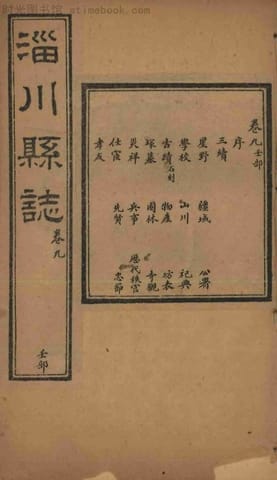 时光图书馆 - stimebook.com
淄川縣誌 卷九
壬部
卷九壬部
序
三續
星野 疆域 公署
學校 山川 祀典
古蹟石刻 物產 坊表
塚墓 園林 寺觀
災祥 兵事 歷代秩官
仕宦 先賢 忠節
孝友